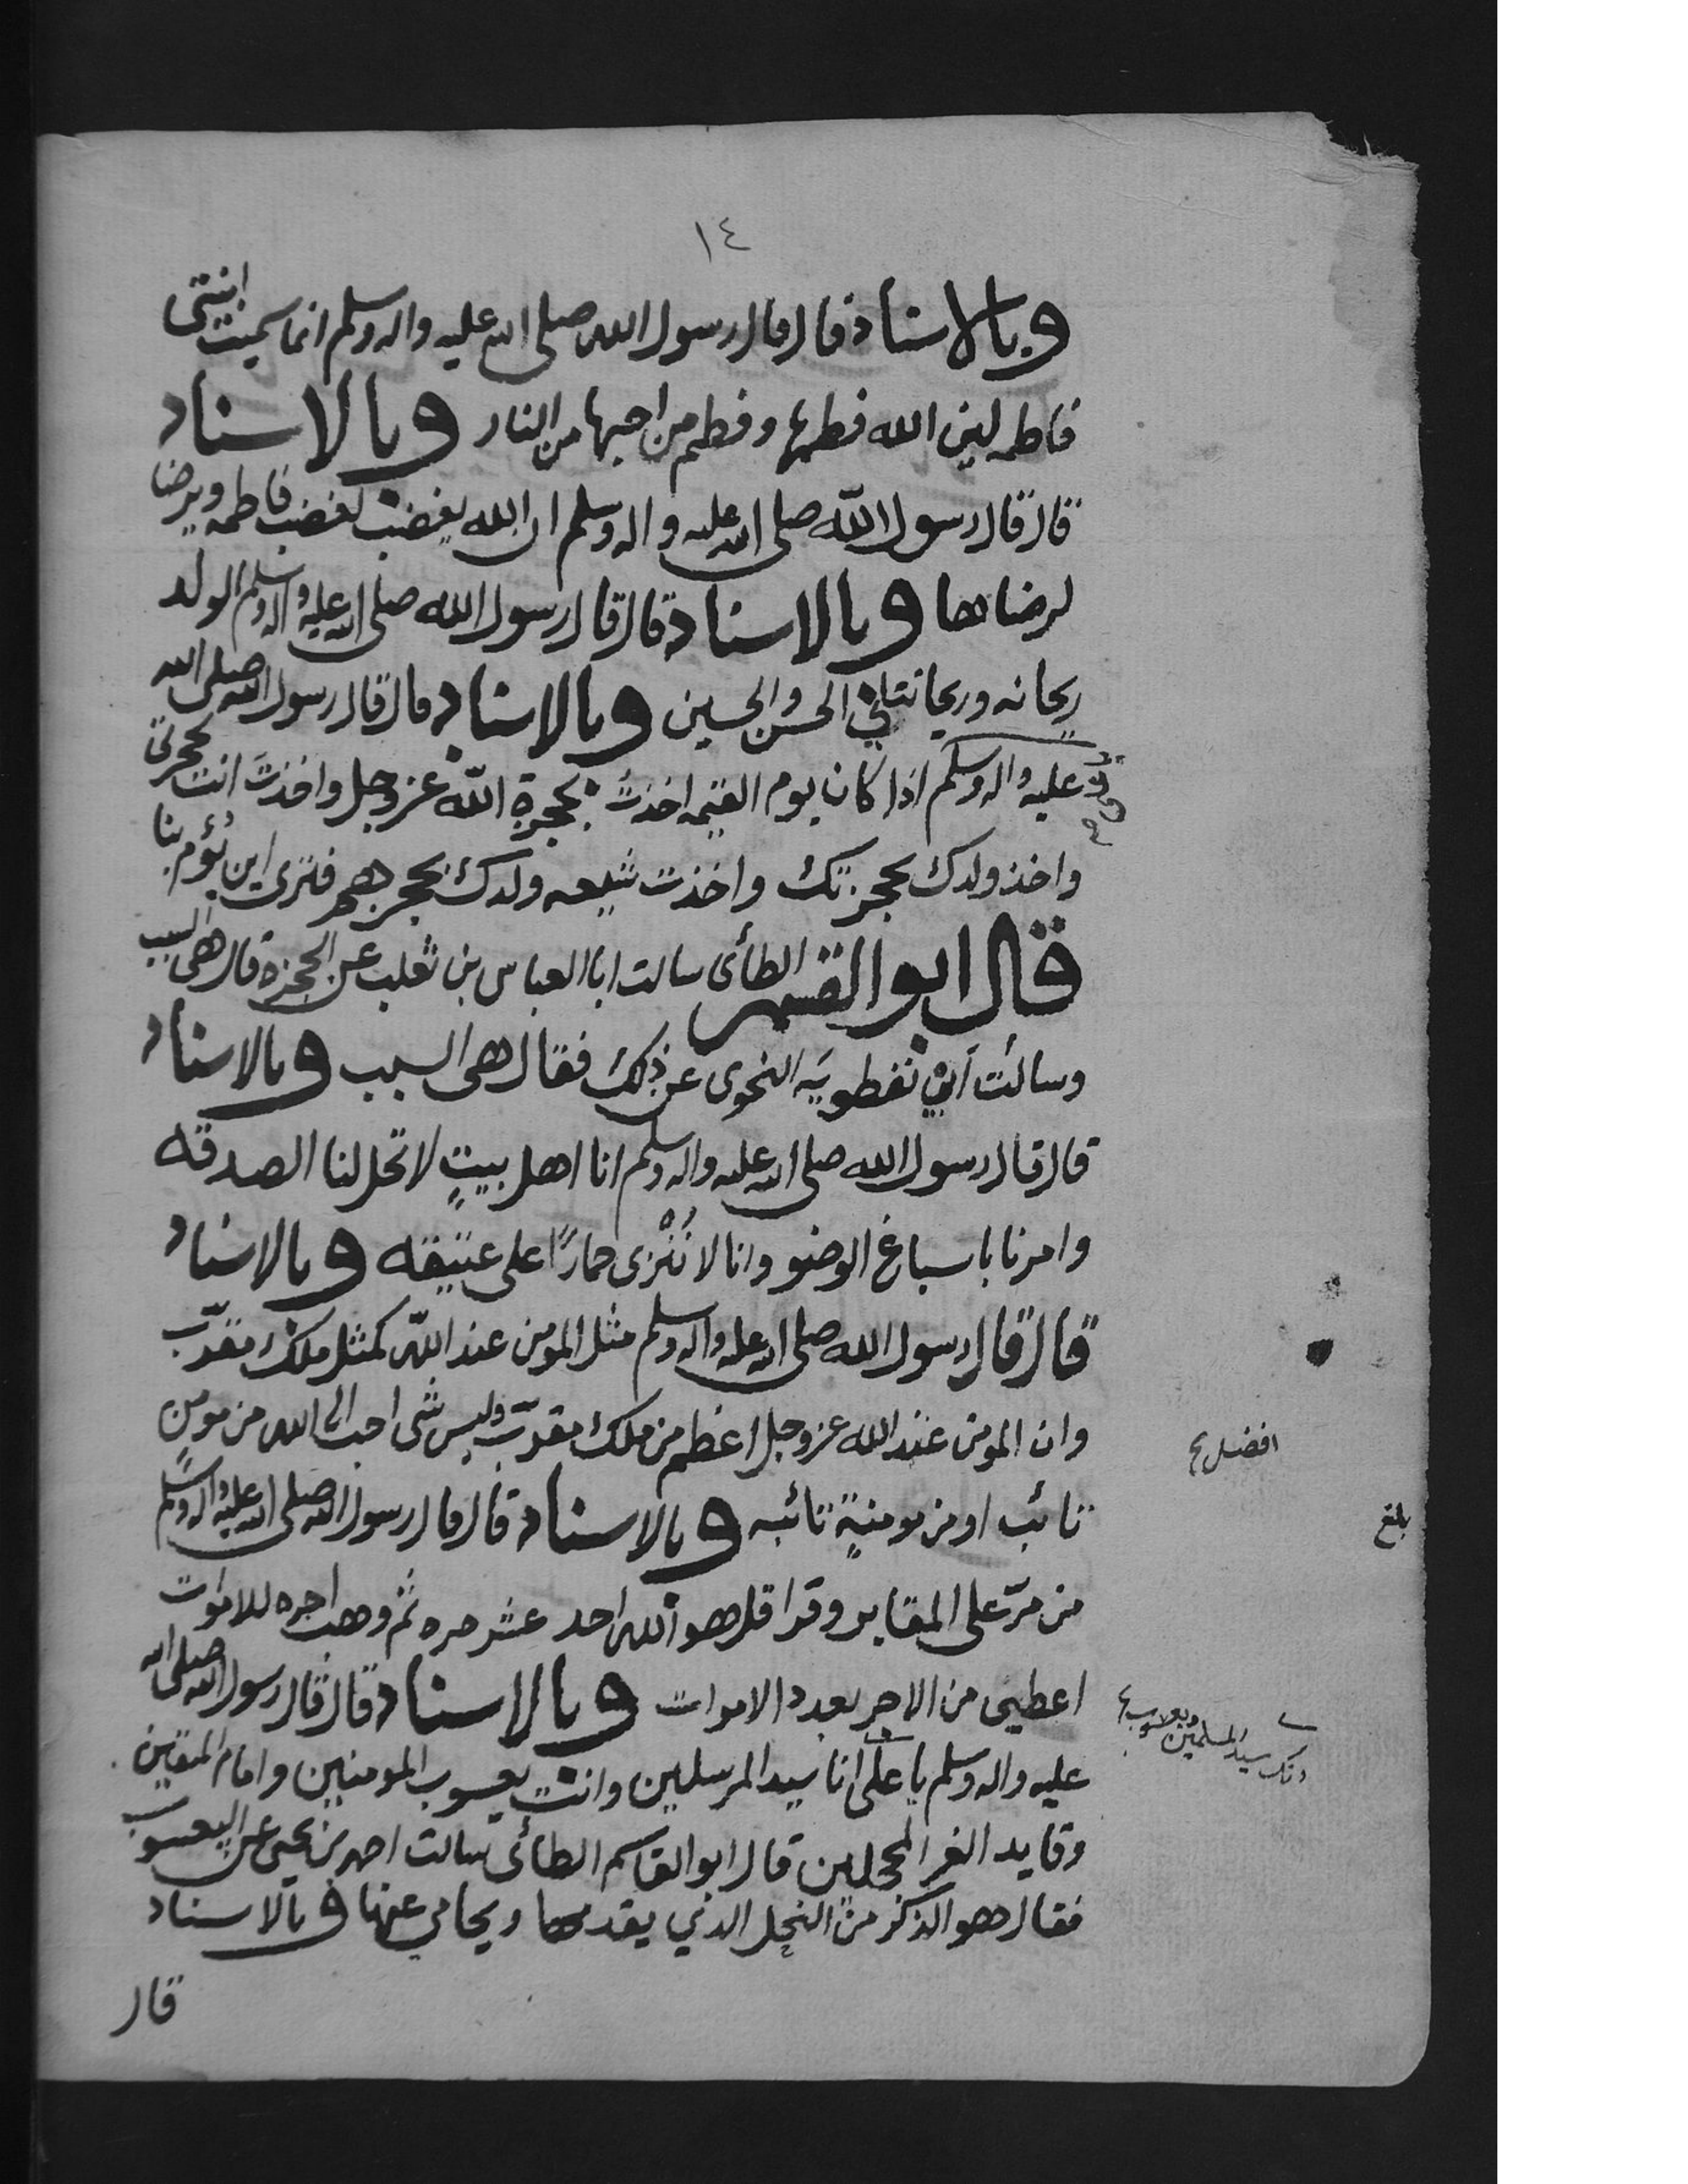 ١٤
وبالاسناد قال قال رسول الله صلى الله عليه واله وسلم انما سميت ابنتى
فاطمه لين الله فطمها وفطم من احبها من النار وبالاسناد
قال قال رسول الله صلى الله عليه واله وسلم ان الله يغضب لغضب فاطمه ويرضا
لرضاها وبالاسناد قال قال رسول الله صلى الله عليه واله وسلم الولد
ريحانه وريحانتاني الحسن والحسين وبالاسناد قال قال رسول الله صلى الله
عليه واله وسلم اذا كان يوم القيمه اخذتُ بحجزة الله عز وجل واخذتَ انت بحجزتى
واخذ ولدك بحجزتك واخذت شيعه ولدك بحجزهم فترى اين يُؤمر بنا
قال ابو القسم الطائى سالت ابا العباس بن ثعلب عن الحجزه قال هى السبب
وسالت نفطويَه النحوى عن ذلك فقال هى السبب وبالاسناد
قال قال رسول الله صلى الله عليه واله وسلم انا اهل بيتٍ لا تحل لنا الصدقه
وامرنا باسباغ الوضو وانا لا نُنْزى حمارًا على عتيقه وبالاسناد
قال قال رسول الله صلى الله عليه واله وسلم مثل المومن عند الله كمثل ملك مقرّب
وان المومن عند الله عز وجل اعظم من ملك مقرّب وليس شى احب الى الله من مومن
افضل
تائب او من مومنةٍ تائبه وبالاسناد قال قال رسول الله صلى الله عليه واله وسلم
بلغ
من مرّ على المقابر وقرا قل هو الله احد عشر مره ثم وهب اجره للاموات
اعطيى من الاجر بعدد الاموات وبالاسناد قال قال رسول الله صلى الله
عليه واله وسلم يا على انا سيد المرسلين وانت يعسوب المومنين وامام المتقين
انك سيد المسلمين ويعسوب
وقايد الغر المحجلين قال ابو القاسم الطائى سالت احمد بن يحيى عن اليعسوب
فقال هو الذكر من النحل الذي يقدمها ويحامي عنها وبالاسناد
قال